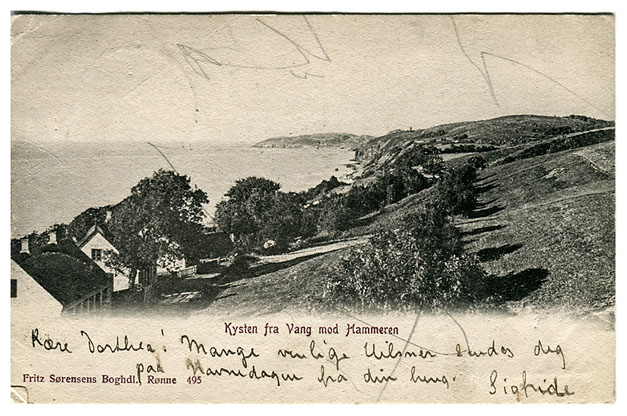 Kysten fra Vang mod Hammeren
Kære Dorthea! Mange venlige Hilsner sendes dig
paa Navnedagen fra din heng. Sigfride
Fritz Sørensens Boghdl., Rønne 495